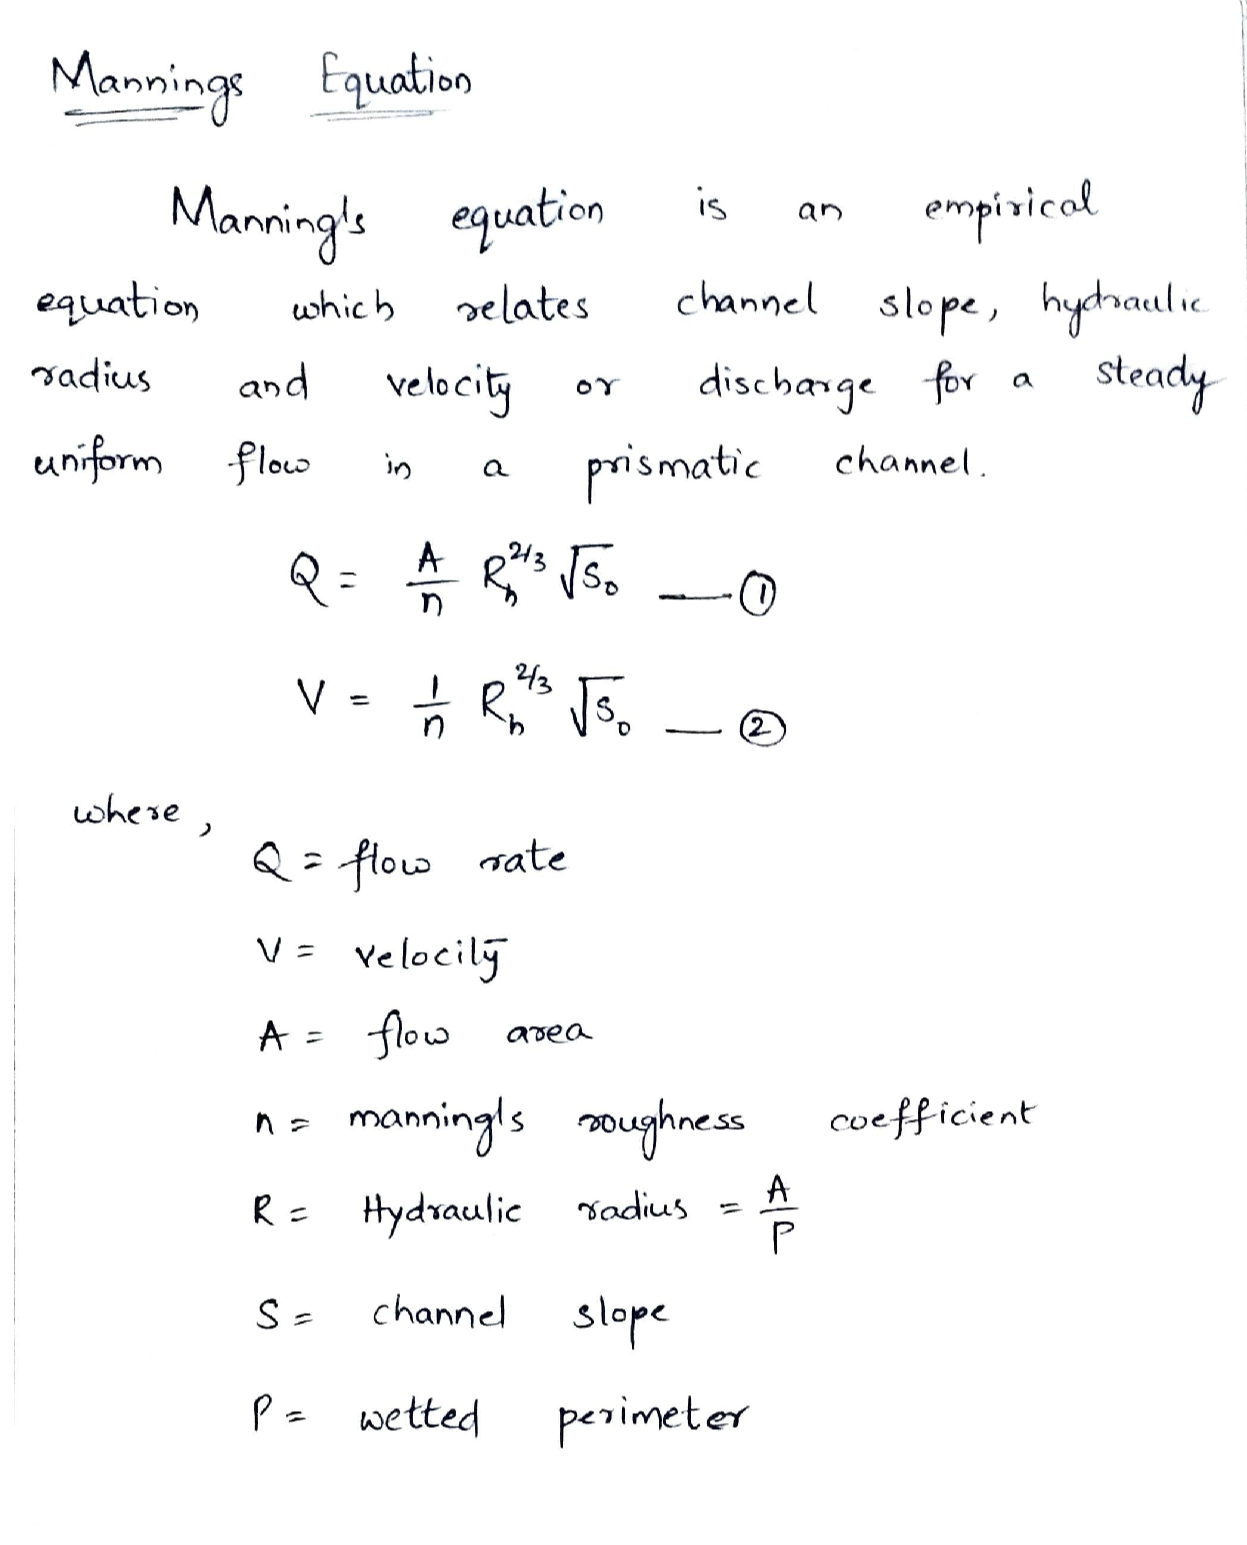 Mannings Equation
Manning's equation is an empirical
equation which relates channel slope, hydraulic
radius and velocity or discharge for a steady
uniform flow in a prismatic channel.
Q = A/n R_h^2/3 √S_0 — ①
V = 1/n R_h^2/3 √S_0 — ②
where,
Q = flow rate
V = velocity
A = flow area
n = manning's roughness coefficient
R = Hydraulic radius = A/P
S = channel slope
P = wetted perimeter